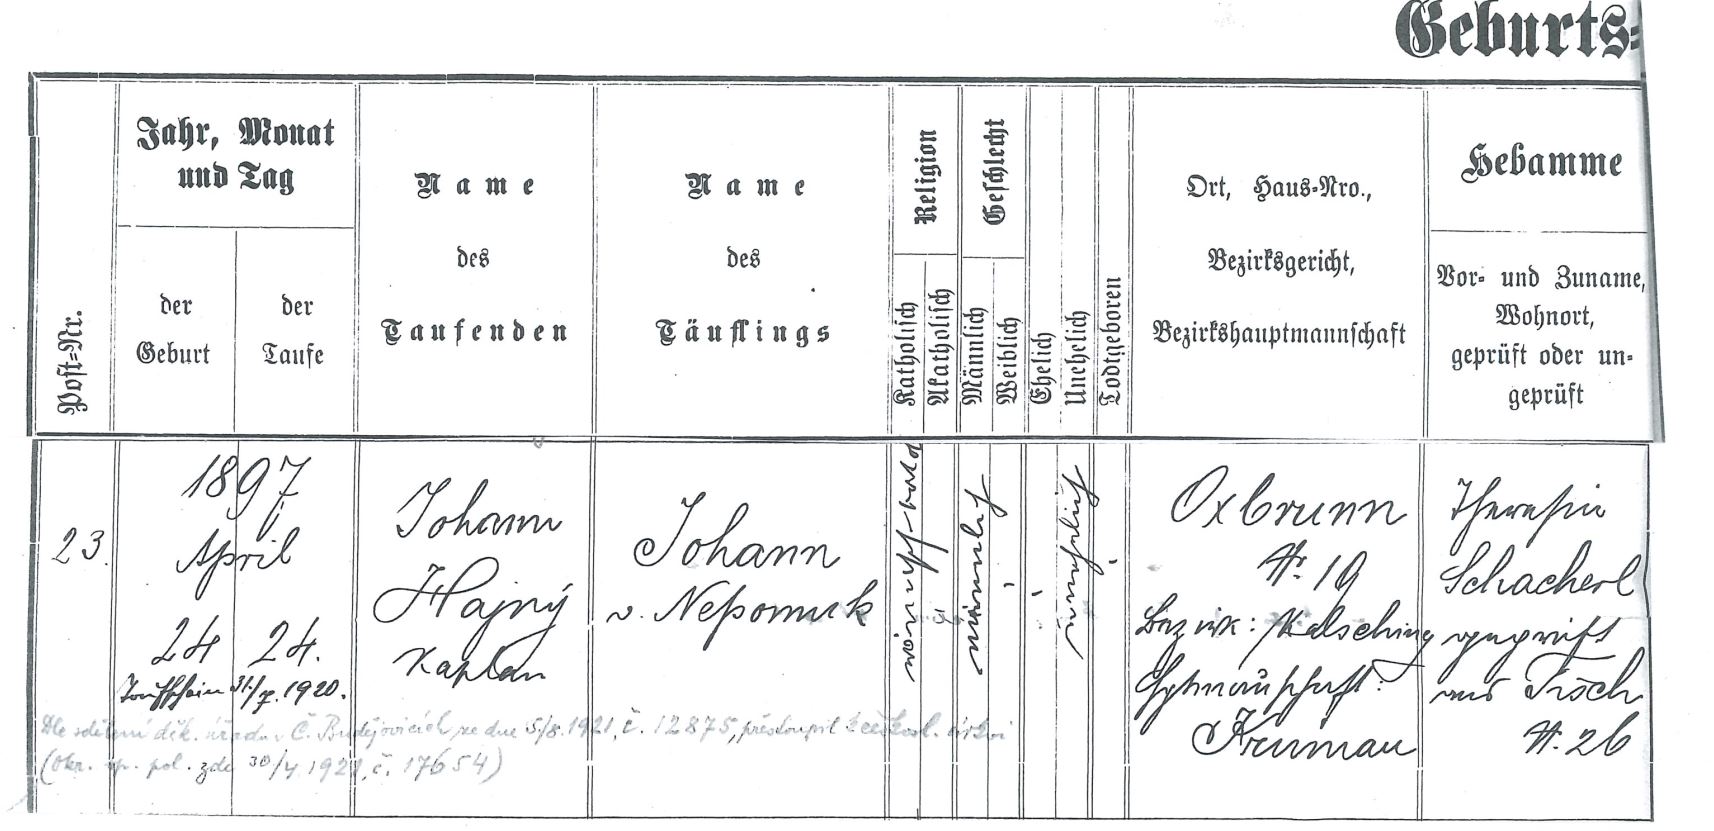 Geburts=
Jahr, Monat
und Tag
Name
des
Taufenden
Name
des
Täuflings
Religion
Geschlecht
Ort, Haus=Nro.,
Bezirksgericht,
Bezirkshauptmannschaft
Hebamme
Post=Nr.
der
Geburt
der
Taufe
Katholisch
Akatholisch
Männlich
Weiblich
Ehelich
Unehelich
Todtgeboren
Vor= und Zuname,
Wohnort,
geprüft oder un=
geprüft
23.
1897
April
24
24.
Taufschein 31/7. 1920.
Johann
Hajný
Kaplan
Johann
v. Nepomuk
männlich
unehelich
Oxbrunn
N. 19
Bezirk: Kalsching
Krumau
Theresia
Schacherl
geprüft
aus Tisch
N. 26
Dle sdělení děk. úřadu v Č. Budějovicích ze dne 5/8. 1921, č. 12875, přestoupil k českosl. církvi
(okr. sp. pol. zde 30/4 1921, č. 17654)